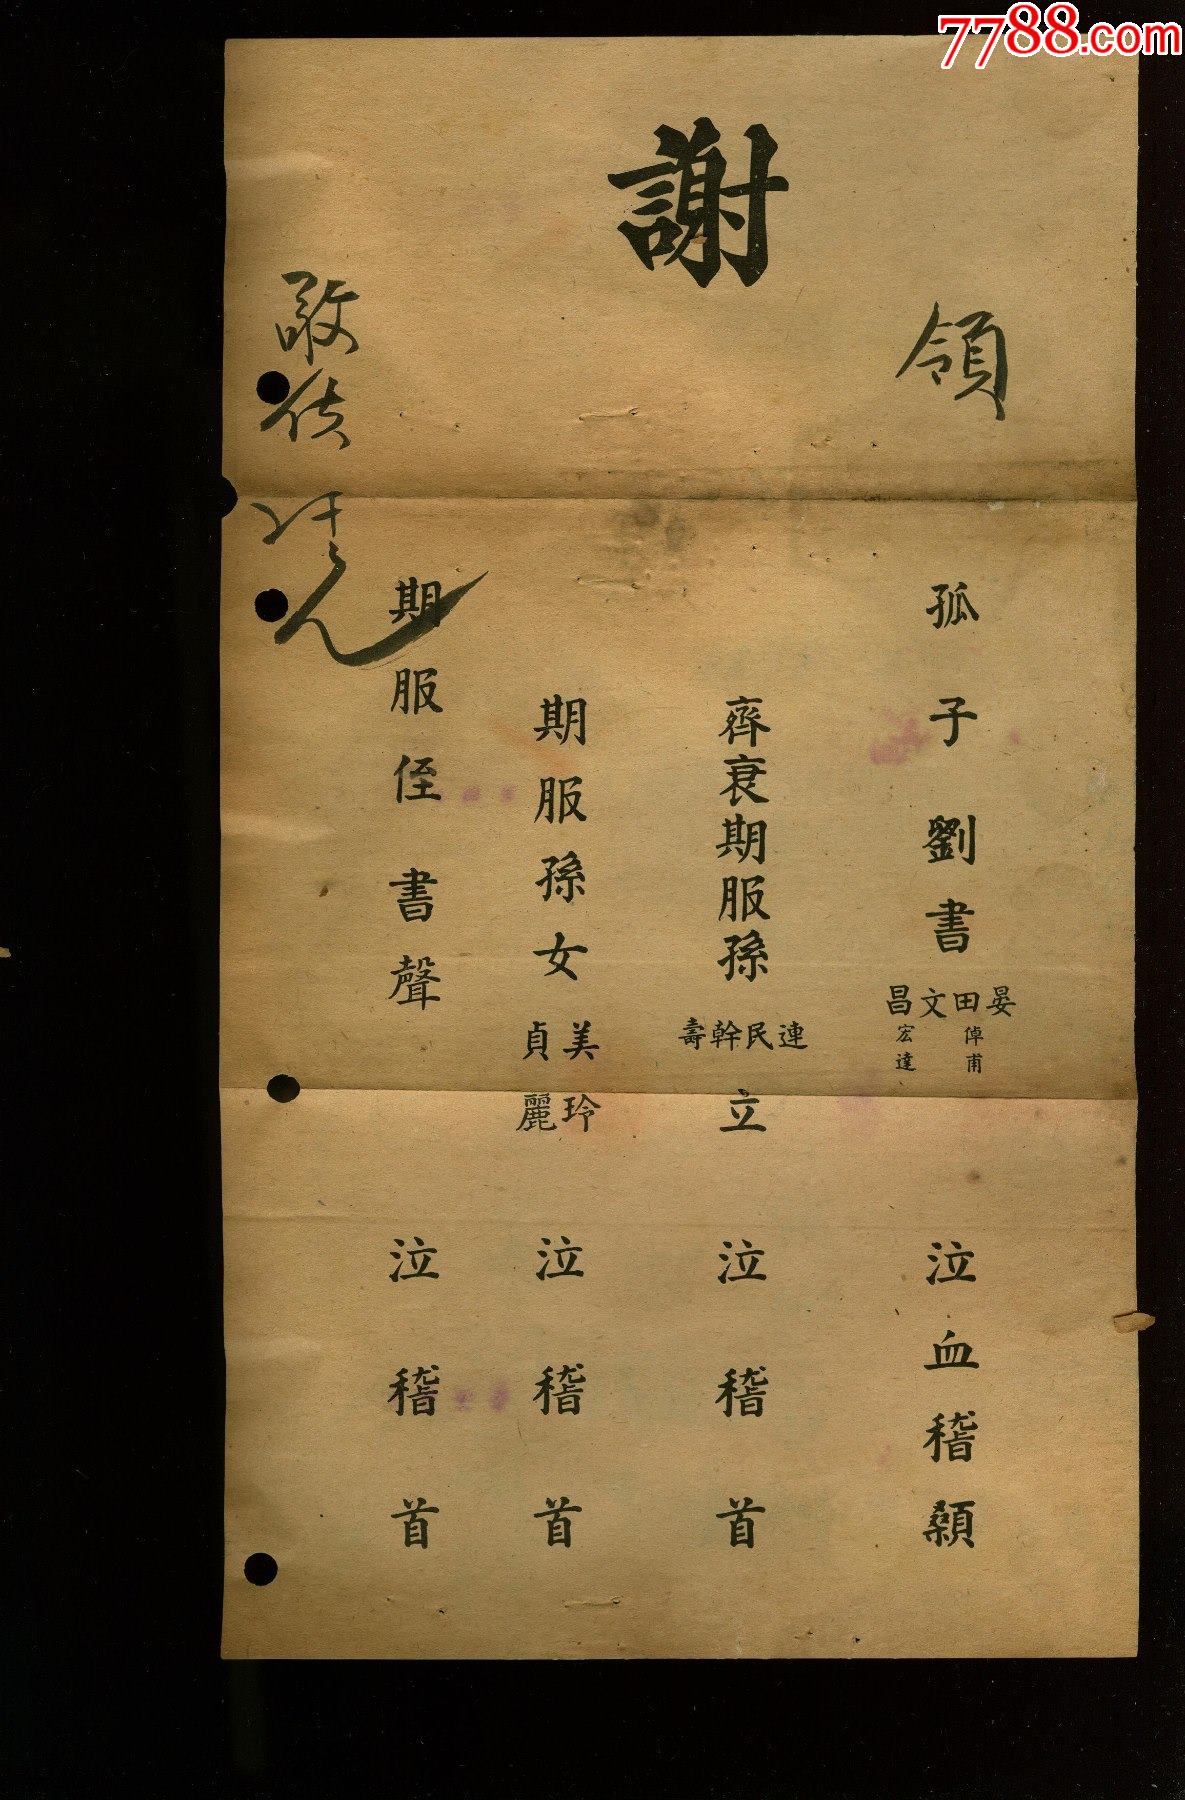 7788.com
謝
領
孤子劉書晏田文昌
倬甫
宏達
泣血稽顙
齊衰期服孫連民幹壽立
泣稽首
期服孫女美貞玲麗
泣稽首
期服侄書聲
泣稽首
敬使